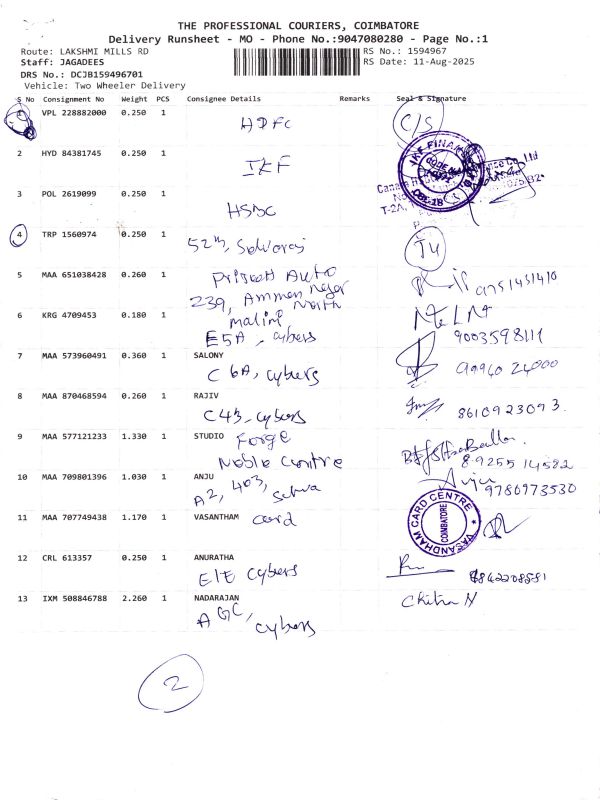 THE PROFESSIONAL COURIERS, COIMBATORE
Delivery Runsheet - MO - Phone No.:9047080280 - Page No.:1
Route: LAKSHMI MILLS RD
RS No.: 1594967
Staff: JAGADEES
RS Date: 11-Aug-2025
DRS No.: DCJB159496701
Vehicle: Two Wheeler Delivery
S No Consignment No Weight PCS Consignee Details Remarks Seal & Signature
1 VPL 228882000 0.250 1
HDFC
C/S
2 HYD 84381745 0.250 1
IKF
IKF FINAN
3 POL 2619099 0.250 1
HSBC
4 TRP 1560974 0.250 1
52
5 MAA 651038428 0.260 1
Auto
9751431410
239, Ammen Nagar North
6 KRG 4709453 0.180 1
malini
E5A, cybers
9003598111
7 MAA 573960491 0.360 1 SALONY
C 6A, cybers
99940 24000
8 MAA 870468594 0.260 1 RAJIV
C43, cybers
8610923093.
9 MAA 577121233 1.330 1 STUDIO Forge
Noble Centre
89255 14582
10 MAA 709801396 1.030 1 ANJU
A2, 403,
Anju
9780973530
11 MAA 707749438 1.170 1 VASANTHAM card
VASANDHAM CARD CENTRE
COIMBATORE
12 CRL 613357 0.250 1 ANURATHA
E1E cybers
13 IXM 508846788 2.260 1 NADARAJAN
Chitra N
AGC, cybers
2